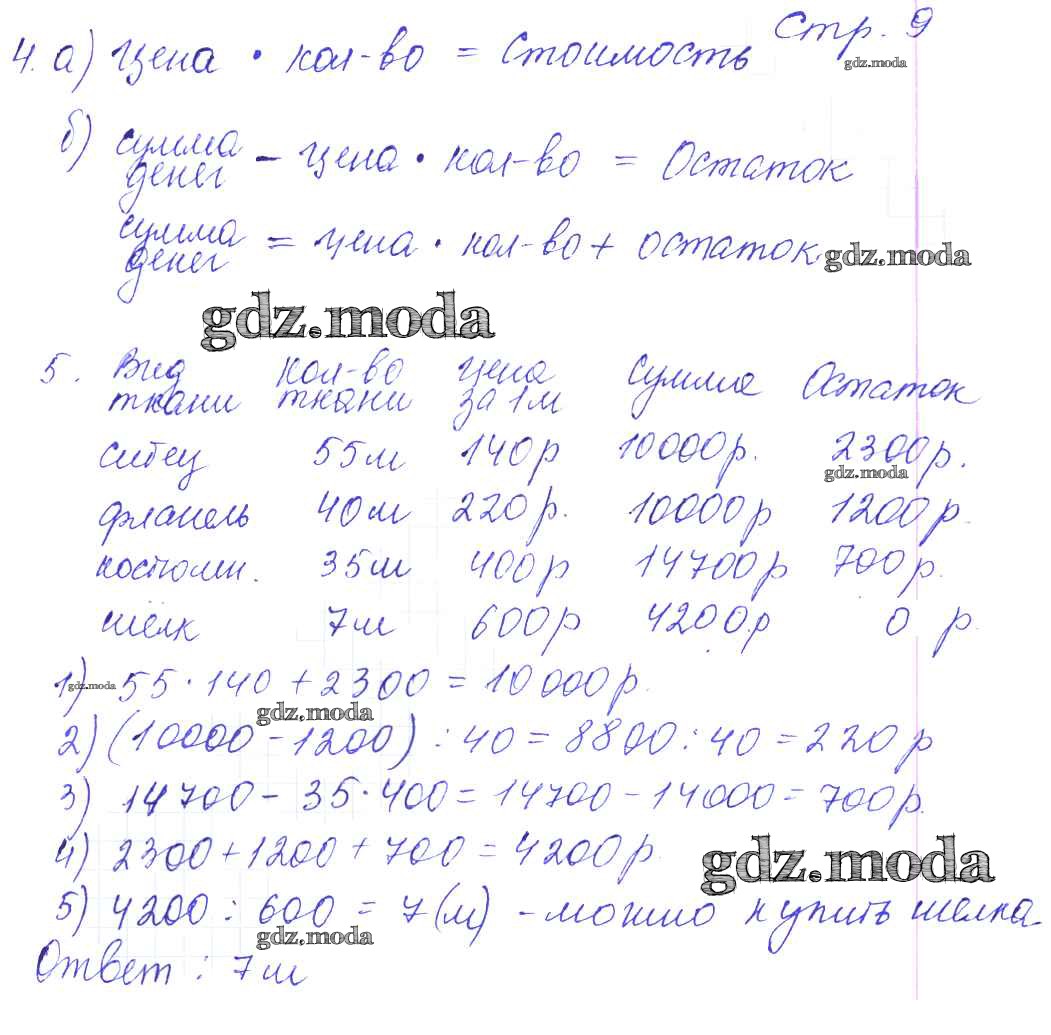 Стр. 9
gdz.moda
4. а) Цена · кол-во = Стоимость
б) сумма денег − цена · кол-во = Остаток
сумма денег = цена · кол-во + остаток
gdz.moda
gdz.moda
5. Вид ткани кол-во ткани цена за 1м Сумма Остаток
ситец 55м 140р 10000р. 2300р.
gdz.moda
фланель 40м 220р. 10000р 1200р.
костюмн. 35м 400р 14700р 700р.
шёлк 7м 600р 4200р 0 р.
1) 55·140 + 2300 = 10000р.
gdz.moda
gdz.moda
2) (10000 − 1200) : 40 = 8800 : 40 = 220р
3) 14700 − 35·400 = 14700 − 14000 = 700р.
4) 2300 + 1200 + 700 = 4200р.
gdz.moda
5) 4200 : 600 = 7(м) - можно купить шелка.
gdz.moda
Ответ : 7м